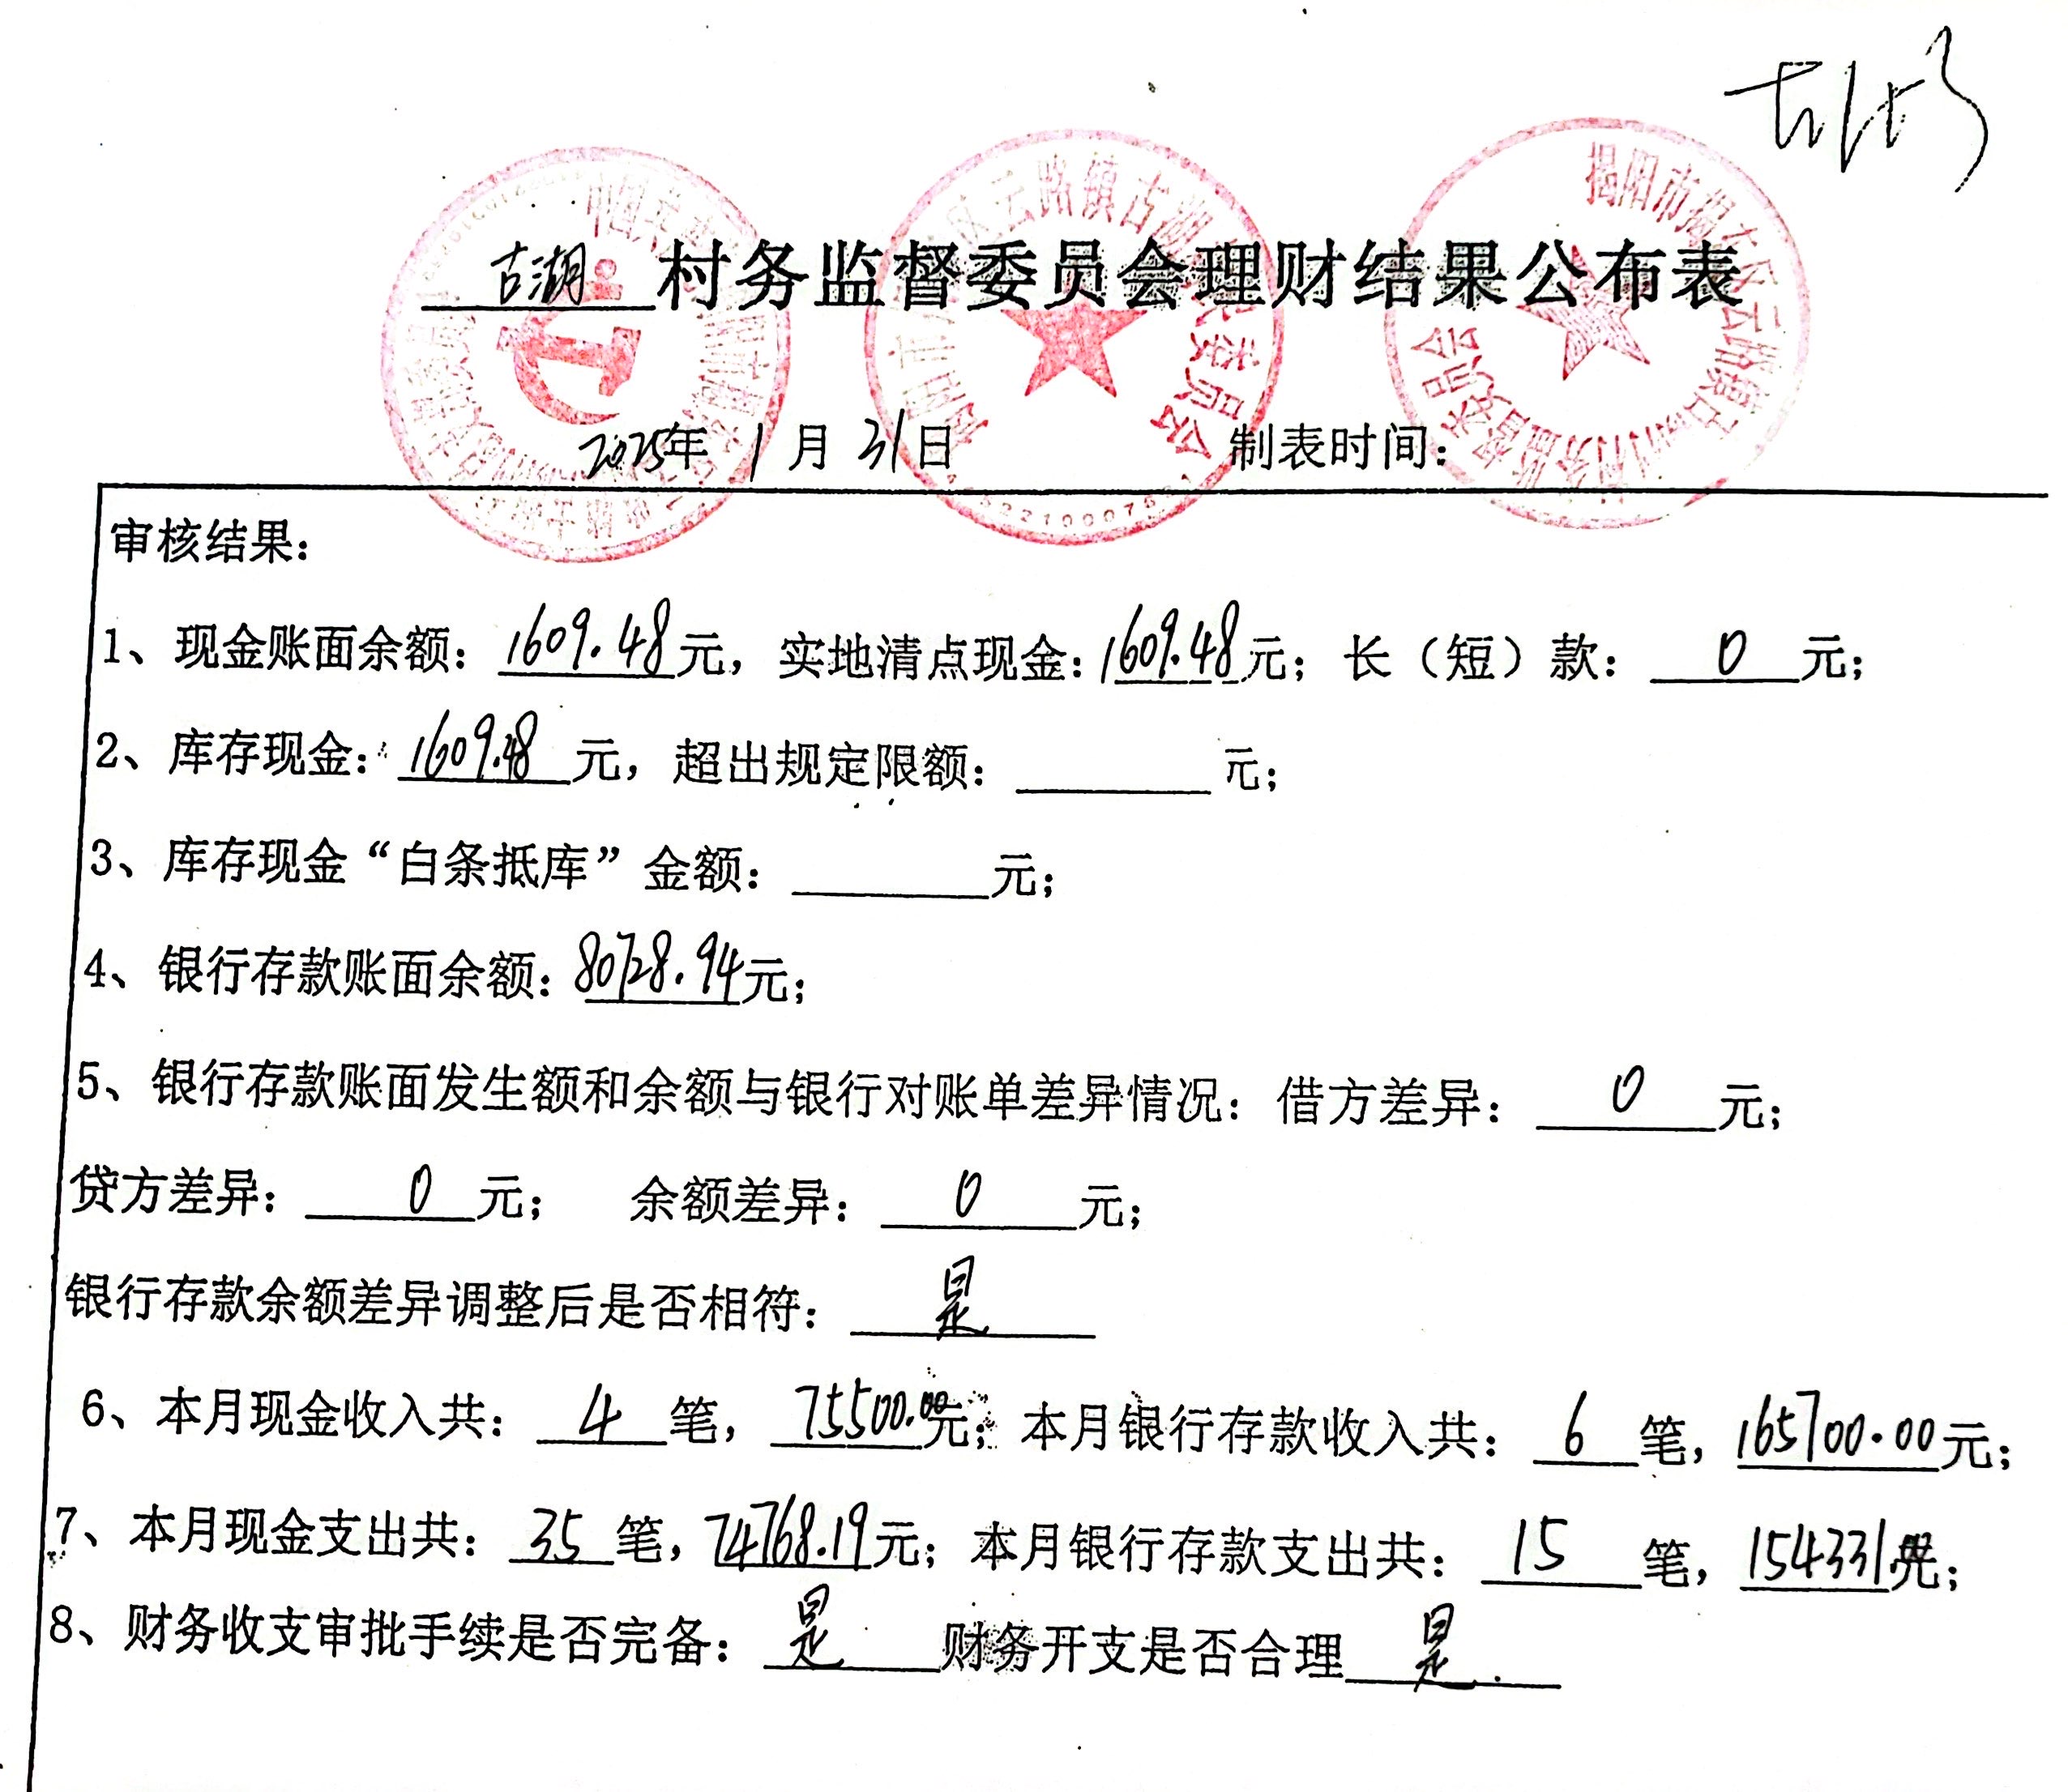 古湖
古湖村务监督委员会理财结果公布表
2025年1月31日 制表时间:
审核结果:
1、现金账面余额: 1609.48元, 实地清点现金: 1609.48元; 长(短)款: 0元;
2、库存现金: 1609.48元, 超出规定限额: 元;
3、库存现金“白条抵库”金额: 元;
4、银行存款账面余额: 80728.94元;
5、银行存款账面发生额和余额与银行对账单差异情况: 借方差异: 0元;
贷方差异: 0元; 余额差异: 0元;
银行存款余额差异调整后是否相符: 是
6、本月现金收入共: 4笔, 75500.00元; 本月银行存款收入共: 6笔, 165700.00元;
7、本月现金支出共: 35笔, 74768.19元; 本月银行存款支出共: 15笔, 154331元;
8、财务收支审批手续是否完备: 是 财务开支是否合理 是.